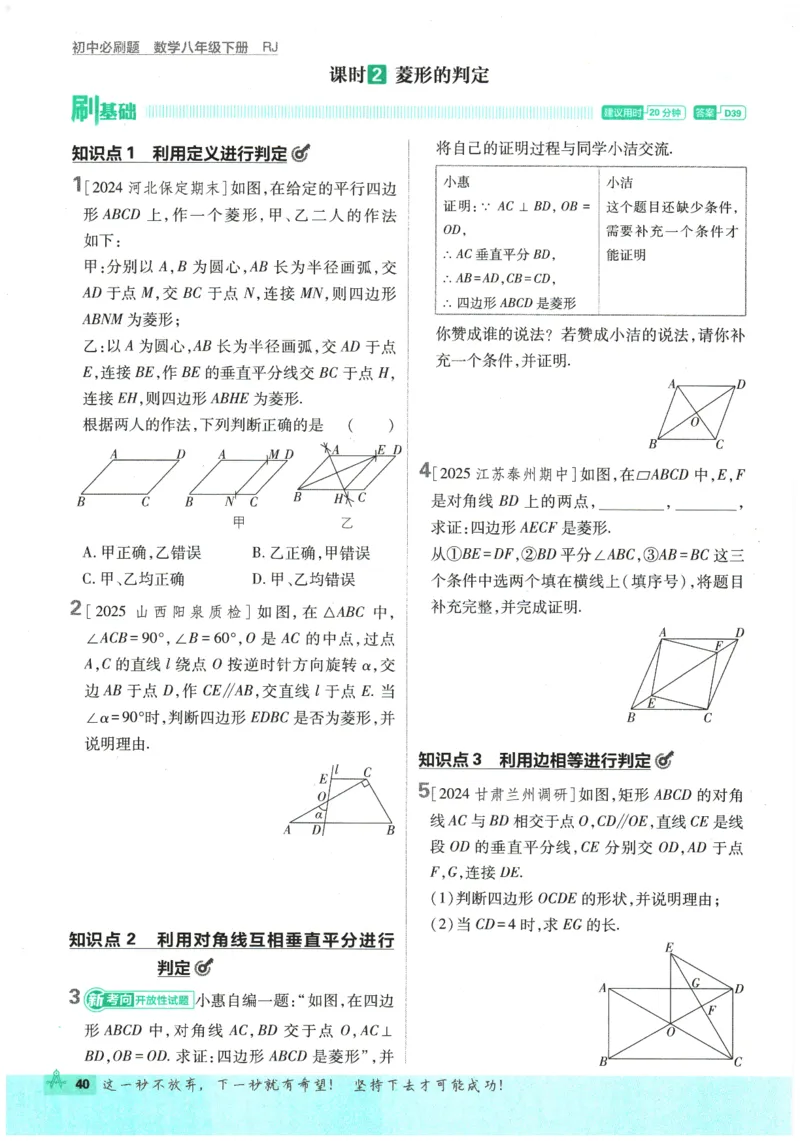 初中必刷题 数学八年级下册 RJ
课时2 菱形的判定
刷基础
建议用时 20分钟 答案 D39
知识点1 利用定义进行判定
1[2024河北保定期末]如图,在给定的平行四边
形ABCD上,作一个菱形,甲、乙二人的作法
如下:
甲:分别以A,B为圆心,AB长为半径画弧,交
AD于点M,交BC于点N,连接MN,则四边形
ABNM为菱形;
乙:以A为圆心,AB长为半径画弧,交AD于点
E,连接BE,作BE的垂直平分线交BC于点H,
连接EH,则四边形ABHE为菱形.
根据两人的作法,下列判断正确的是 ( )
A D A M D A E D
B C B N C B H C
甲 乙
A.甲正确,乙错误 B.乙正确,甲错误
C.甲、乙均正确 D.甲、乙均错误
2[2025山西阳泉质检]如图,在△ABC中,
∠ACB=90°,∠B=60°,O是AC的中点,过点
A,C的直线l绕点O按逆时针方向旋转α,交
边AB于点D,作CE∥AB,交直线l于点E.当
∠α=90°时,判断四边形EDBC是否为菱形,并
说明理由.
l
E C
O
α
A D B
知识点2 利用对角线互相垂直平分进行
判定
3 新考向 开放性试题 小惠自编一题:“如图,在四边
形ABCD中,对角线AC,BD交于点O,AC⊥
BD,OB=OD.求证:四边形ABCD是菱形”,并
将自己的证明过程与同学小洁交流.
小惠 小洁
证明:∵AC⊥BD,OB= 这个题目还缺少条件,
OD, 需要补充一个条件才
∴AC垂直平分BD, 能证明
∴AB=AD,CB=CD,
∴四边形ABCD是菱形
你赞成谁的说法?若赞成小洁的说法,请你补
充一个条件,并证明.
A D
O
B C
4[2025江苏泰州期中]如图,在▱ABCD中,E,F
是对角线BD上的两点,________,________,
求证:四边形AECF是菱形.
从①BE=DF,②BD平分∠ABC,③AB=BC这三
个条件中选两个填在横线上(填序号),将题目
补充完整,并完成证明.
A D
F
E
B C
知识点3 利用边相等进行判定
5[2024甘肃兰州调研]如图,矩形ABCD的对角
线AC与BD相交于点O,CD∥OE,直线CE是线
段OD的垂直平分线,CE分别交OD,AD于点
F,G,连接DE.
(1)判断四边形OCDE的形状,并说明理由;
(2)当CD=4时,求EG的长.
E
A G D
F
O
B C
40 这一秒不放弃,下一秒就有希望! 坚持下去才可能成功!